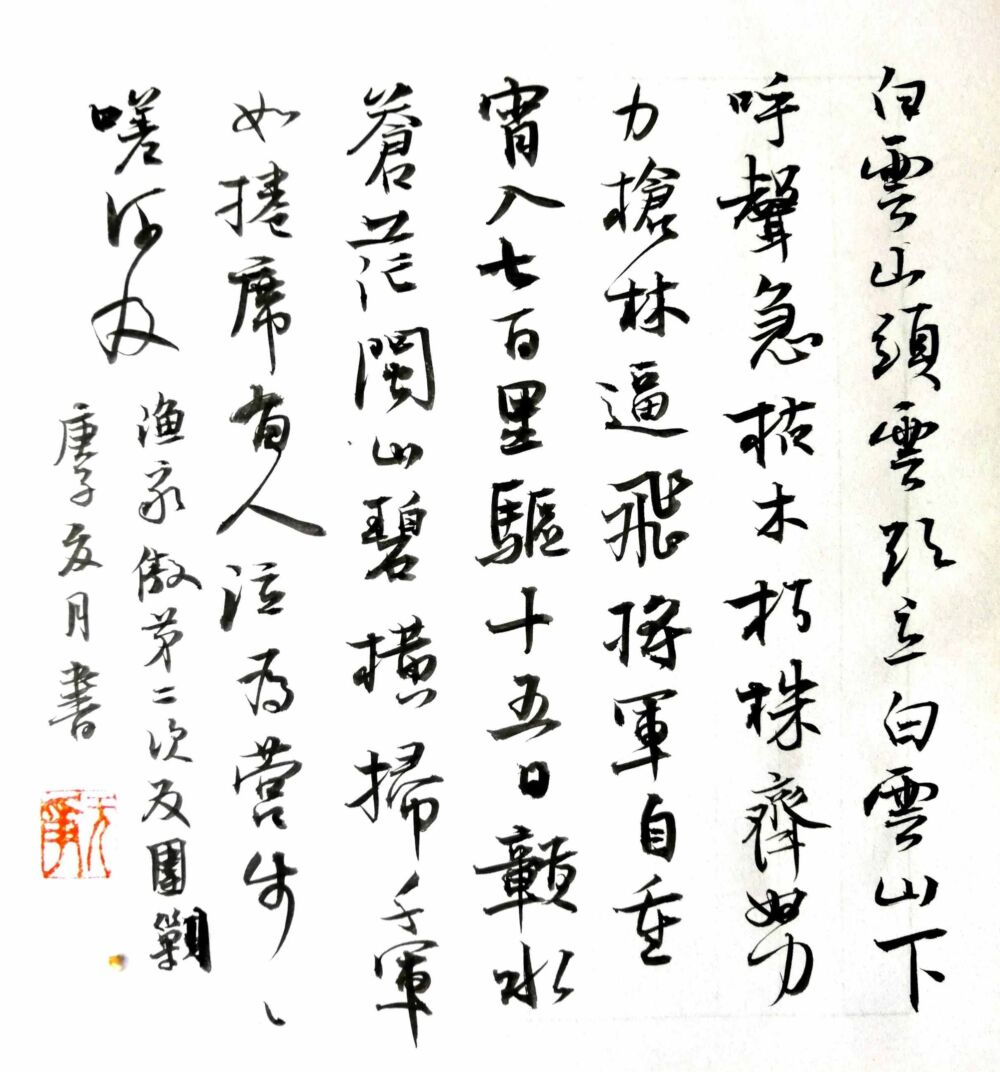 白雲山頭雲欲立白雲山下
呼聲急枯木朽株齊努
力槍林逼飛將軍自重
宵入七百里驅十五日贛水
蒼茫閩山碧橫掃千軍
如捲席有人泣為營步、
嗟何及
渔家傲第二次反圍
庚子夏月書